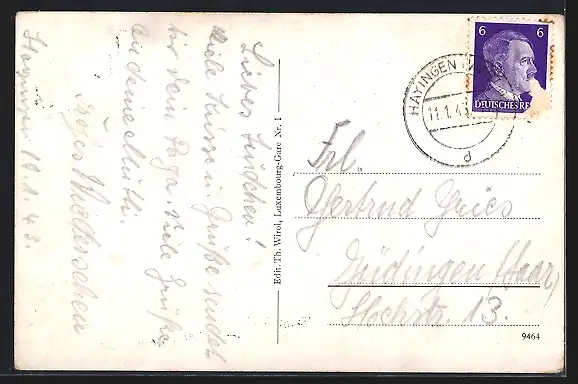 Liebes Lindchen!
Viele Küsse u. Grüße sendet
dir dein Papa. Viele Grüße
an deine Mutti.
Auf Wiedersehen
10.1.43.
Edit. Th. Wirol, Luxembourg-Gare Nr. 1
6 6
DEUTSCHES RE
HAYINGEN
11.1.43
d
Frl.
Gertrud Gries
Güdingen (Saar)
Hochstr. 13.
9464